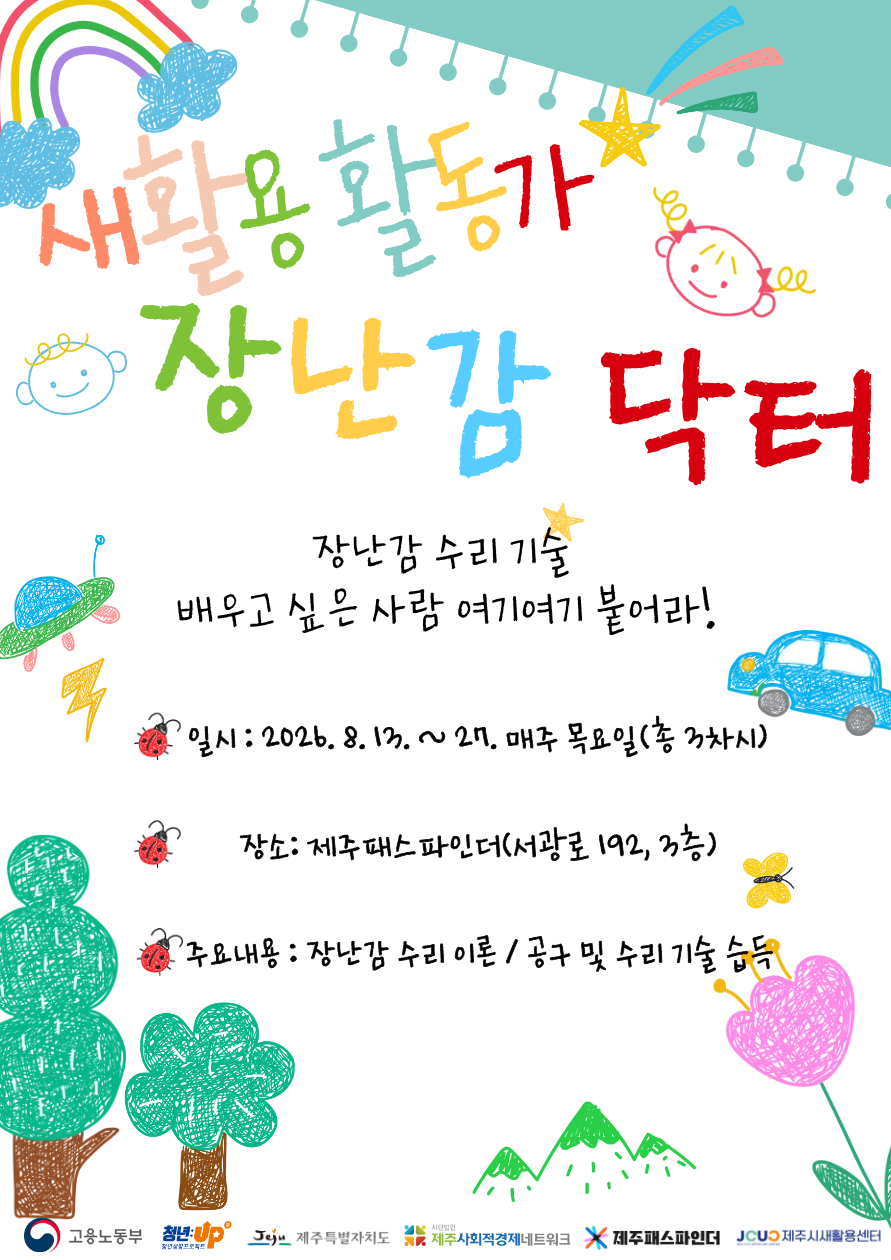 새활용 활동가
장난감 닥터
장난감 수리 기술
배우고 싶은 사람 여기여기 붙어라!
일시 : 2026. 8. 13. ~ 27. 매주 목요일(총 3차시)
장소: 제주패스파인더(서광로 192, 3층)
주요내용 : 장난감 수리 이론 / 공구 및 수리 기술 습득
고용노동부
청년:UP
청년성장프로젝트
Jeju 제주특별자치도
사단법인
제주사회적경제네트워크
제주패스파인더
JCUC 제주시새활용센터